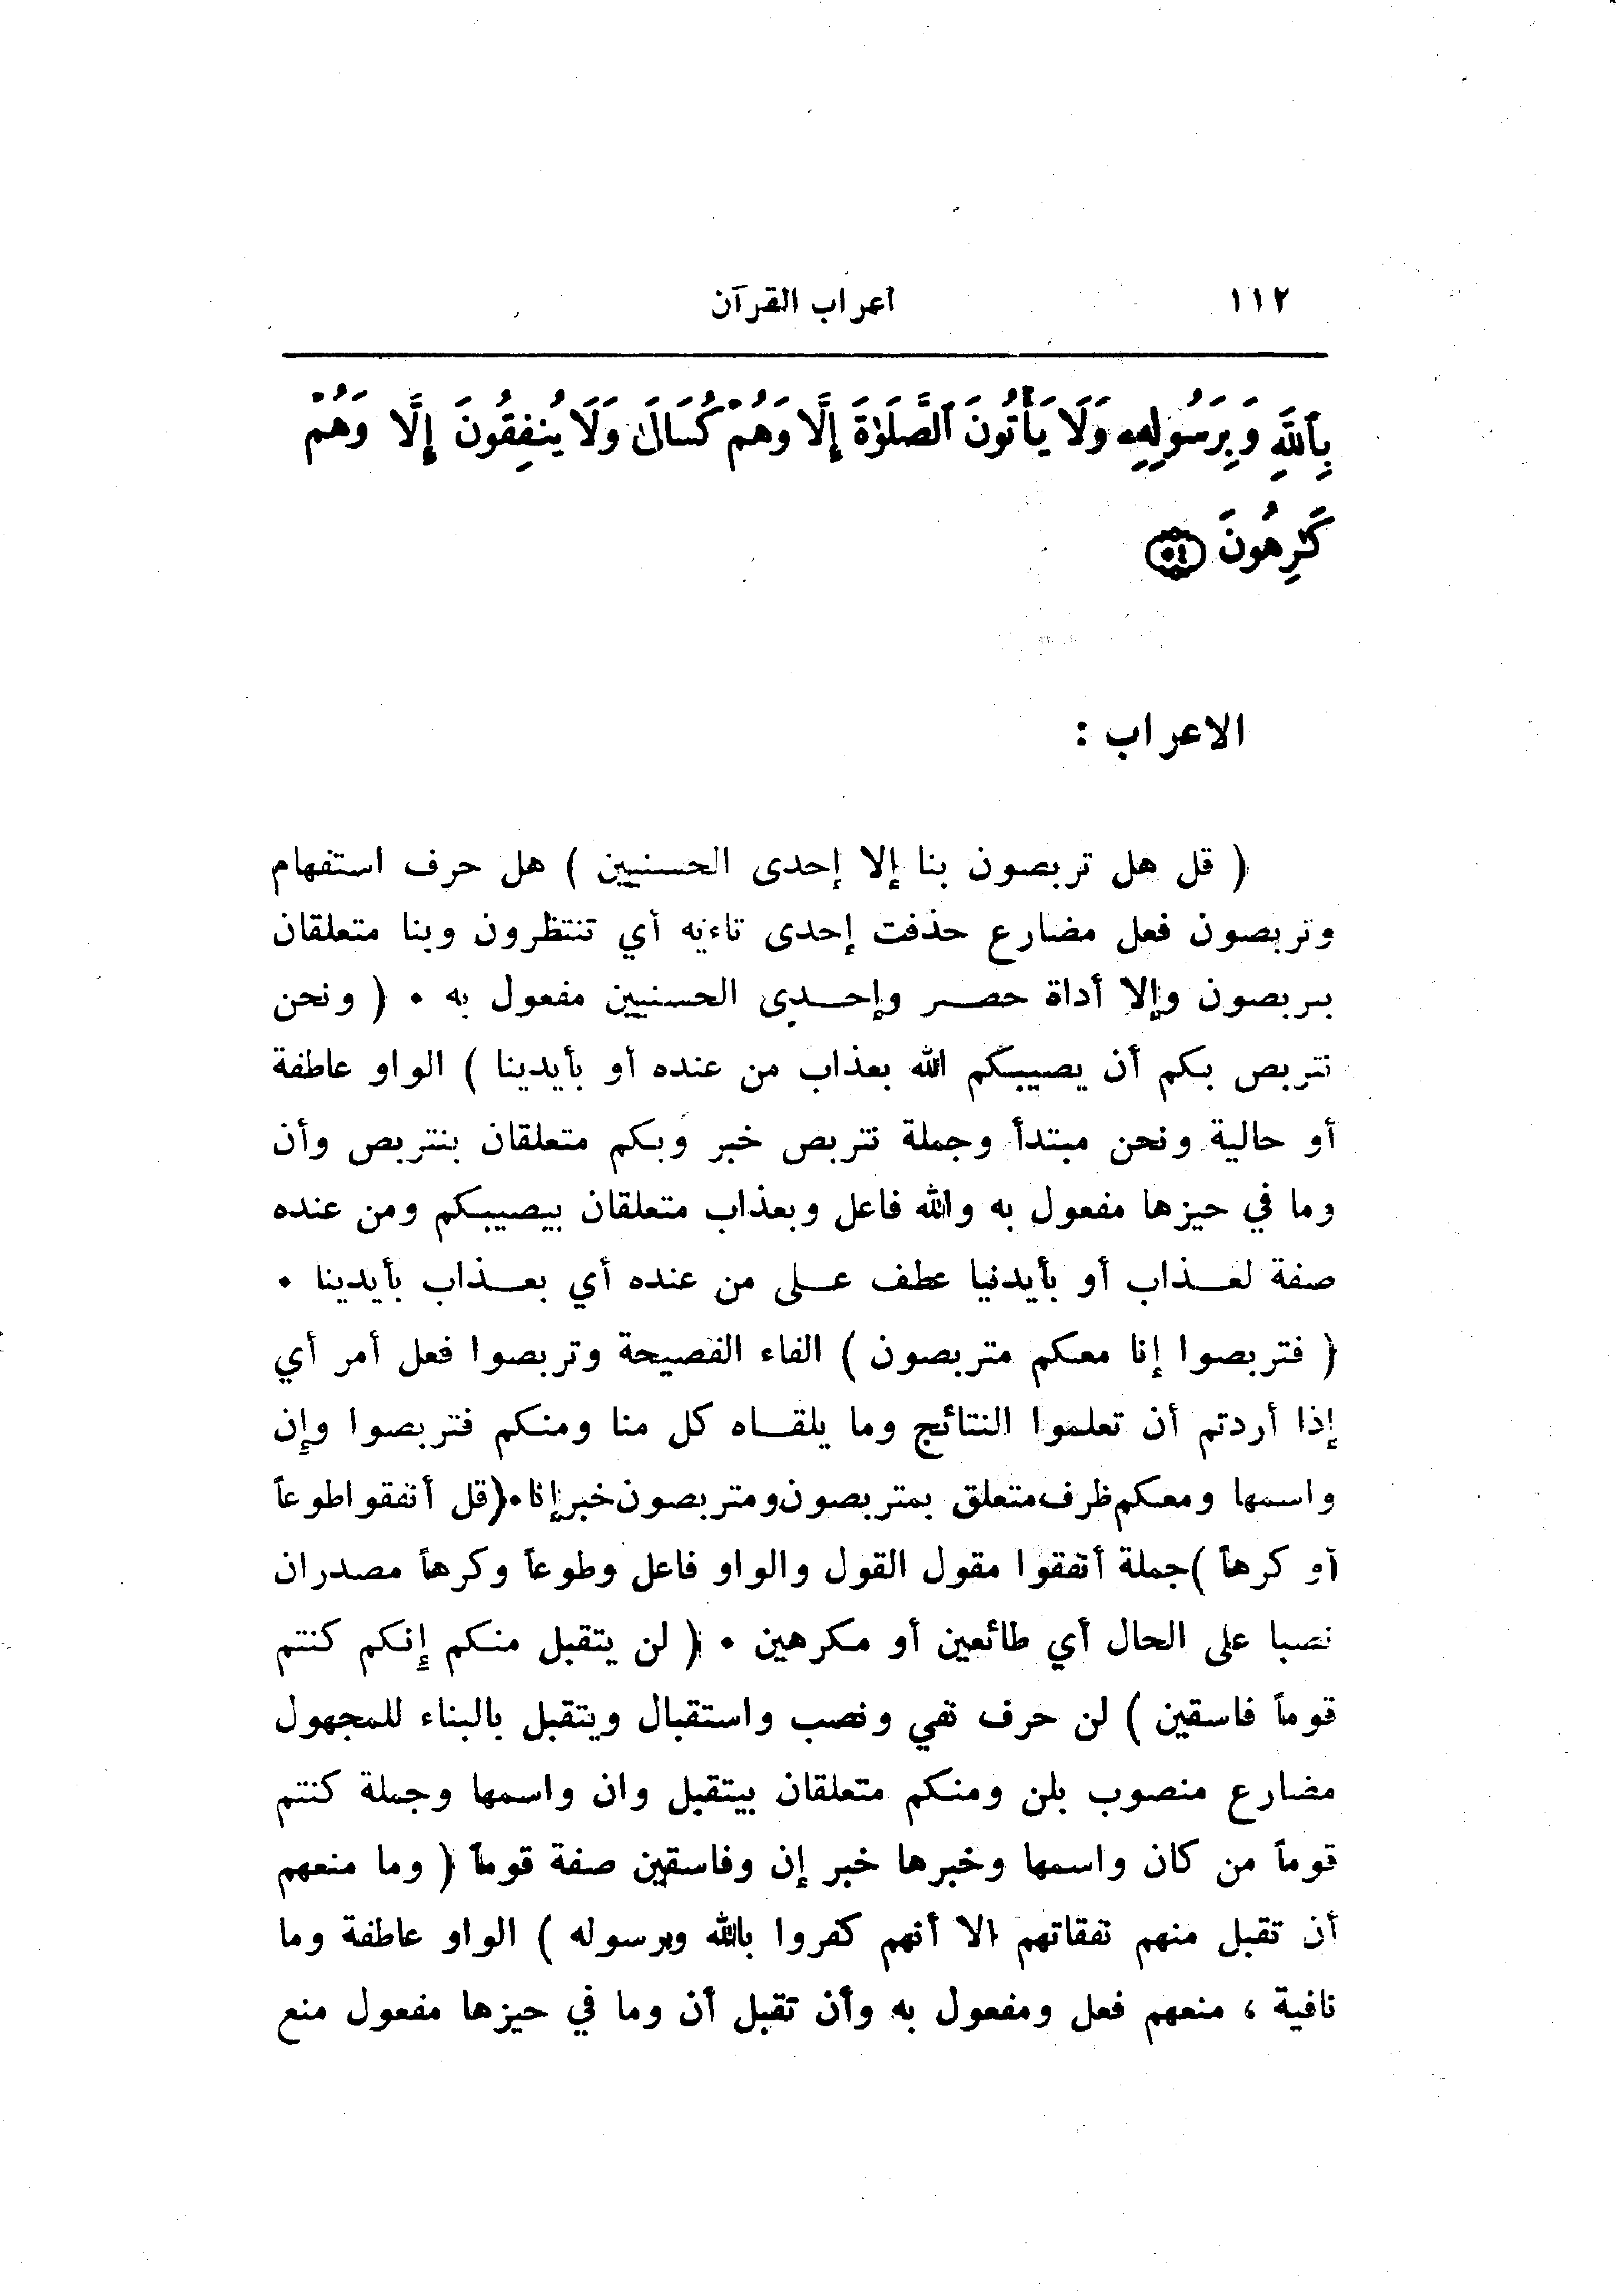 ١١٢ أعراب القرآن
بِٱللَّهِ وَبِرَسُولِهِۦ وَلَا يَأْتُونَ ٱلصَّلَوٰةَ إِلَّا وَهُمْ كُسَالَىٰ وَلَا يُنفِقُونَ إِلَّا وَهُمْ
كَٰرِهُونَ ٥٤
الاعراب :
( قل هل تربصون بنا إلا إحدى الحسنيين ) هل حرف استفهام
وتربصون فعل مضارع حذفت إحدى تاءيه أي تنتظرون وبنا متعلقان
بربصون وإلا أداة حصر وإحدى الحسنيين مفعول به ٠ ( ونحن
نتربص بكم أن يصيبكم الله بعذاب من عنده أو بأيدينا ) الواو عاطفة
أو حالية ونحن مبتدأ وجملة نتربص خبر وبكم متعلقان بنتربص وأن
وما في حيزها مفعول به والله فاعل وبعذاب متعلقان بيصيبكم ومن عنده
صفة لعذاب أو بأيدنيا عطف على من عنده أي بعذاب بأيدينا ٠
( فتربصوا إنا معكم متربصون ) الفاء الفصيحة وتربصوا فعل أمر أي
إذا أردتم أن تعلموا النتائج وما يلقاه كل منا ومنكم فتربصوا وإن
واسمها ومعكم ظرف متعلق بمتربصون ومتربصون خبر إنا ٠ ( قل أنفقوا طوعاً
أو كرهاً ) جملة أنفقوا مقول القول والواو فاعل وطوعاً وكرهاً مصدران
نصبا على الحال أي طائعين أو مكرهين ٠ ( لن يتقبل منكم إنكم كنتم
قوماً فاسقين ) لن حرف نفي ونصب واستقبال ويتقبل بالبناء للمجهول
مضارع منصوب بلن ومنكم متعلقان بيتقبل وان واسمها وجملة كنتم
قوماً من كان واسمها وخبرها خبر إن وفاسقين صفة قوماً ( وما منعهم
أن تقبل منهم نفقاتهم الا أنهم كفروا بالله وبرسوله ) الواو عاطفة وما
نافية ، منعهم فعل ومفعول به وأن تقبل أن وما في حيزها مفعول منع